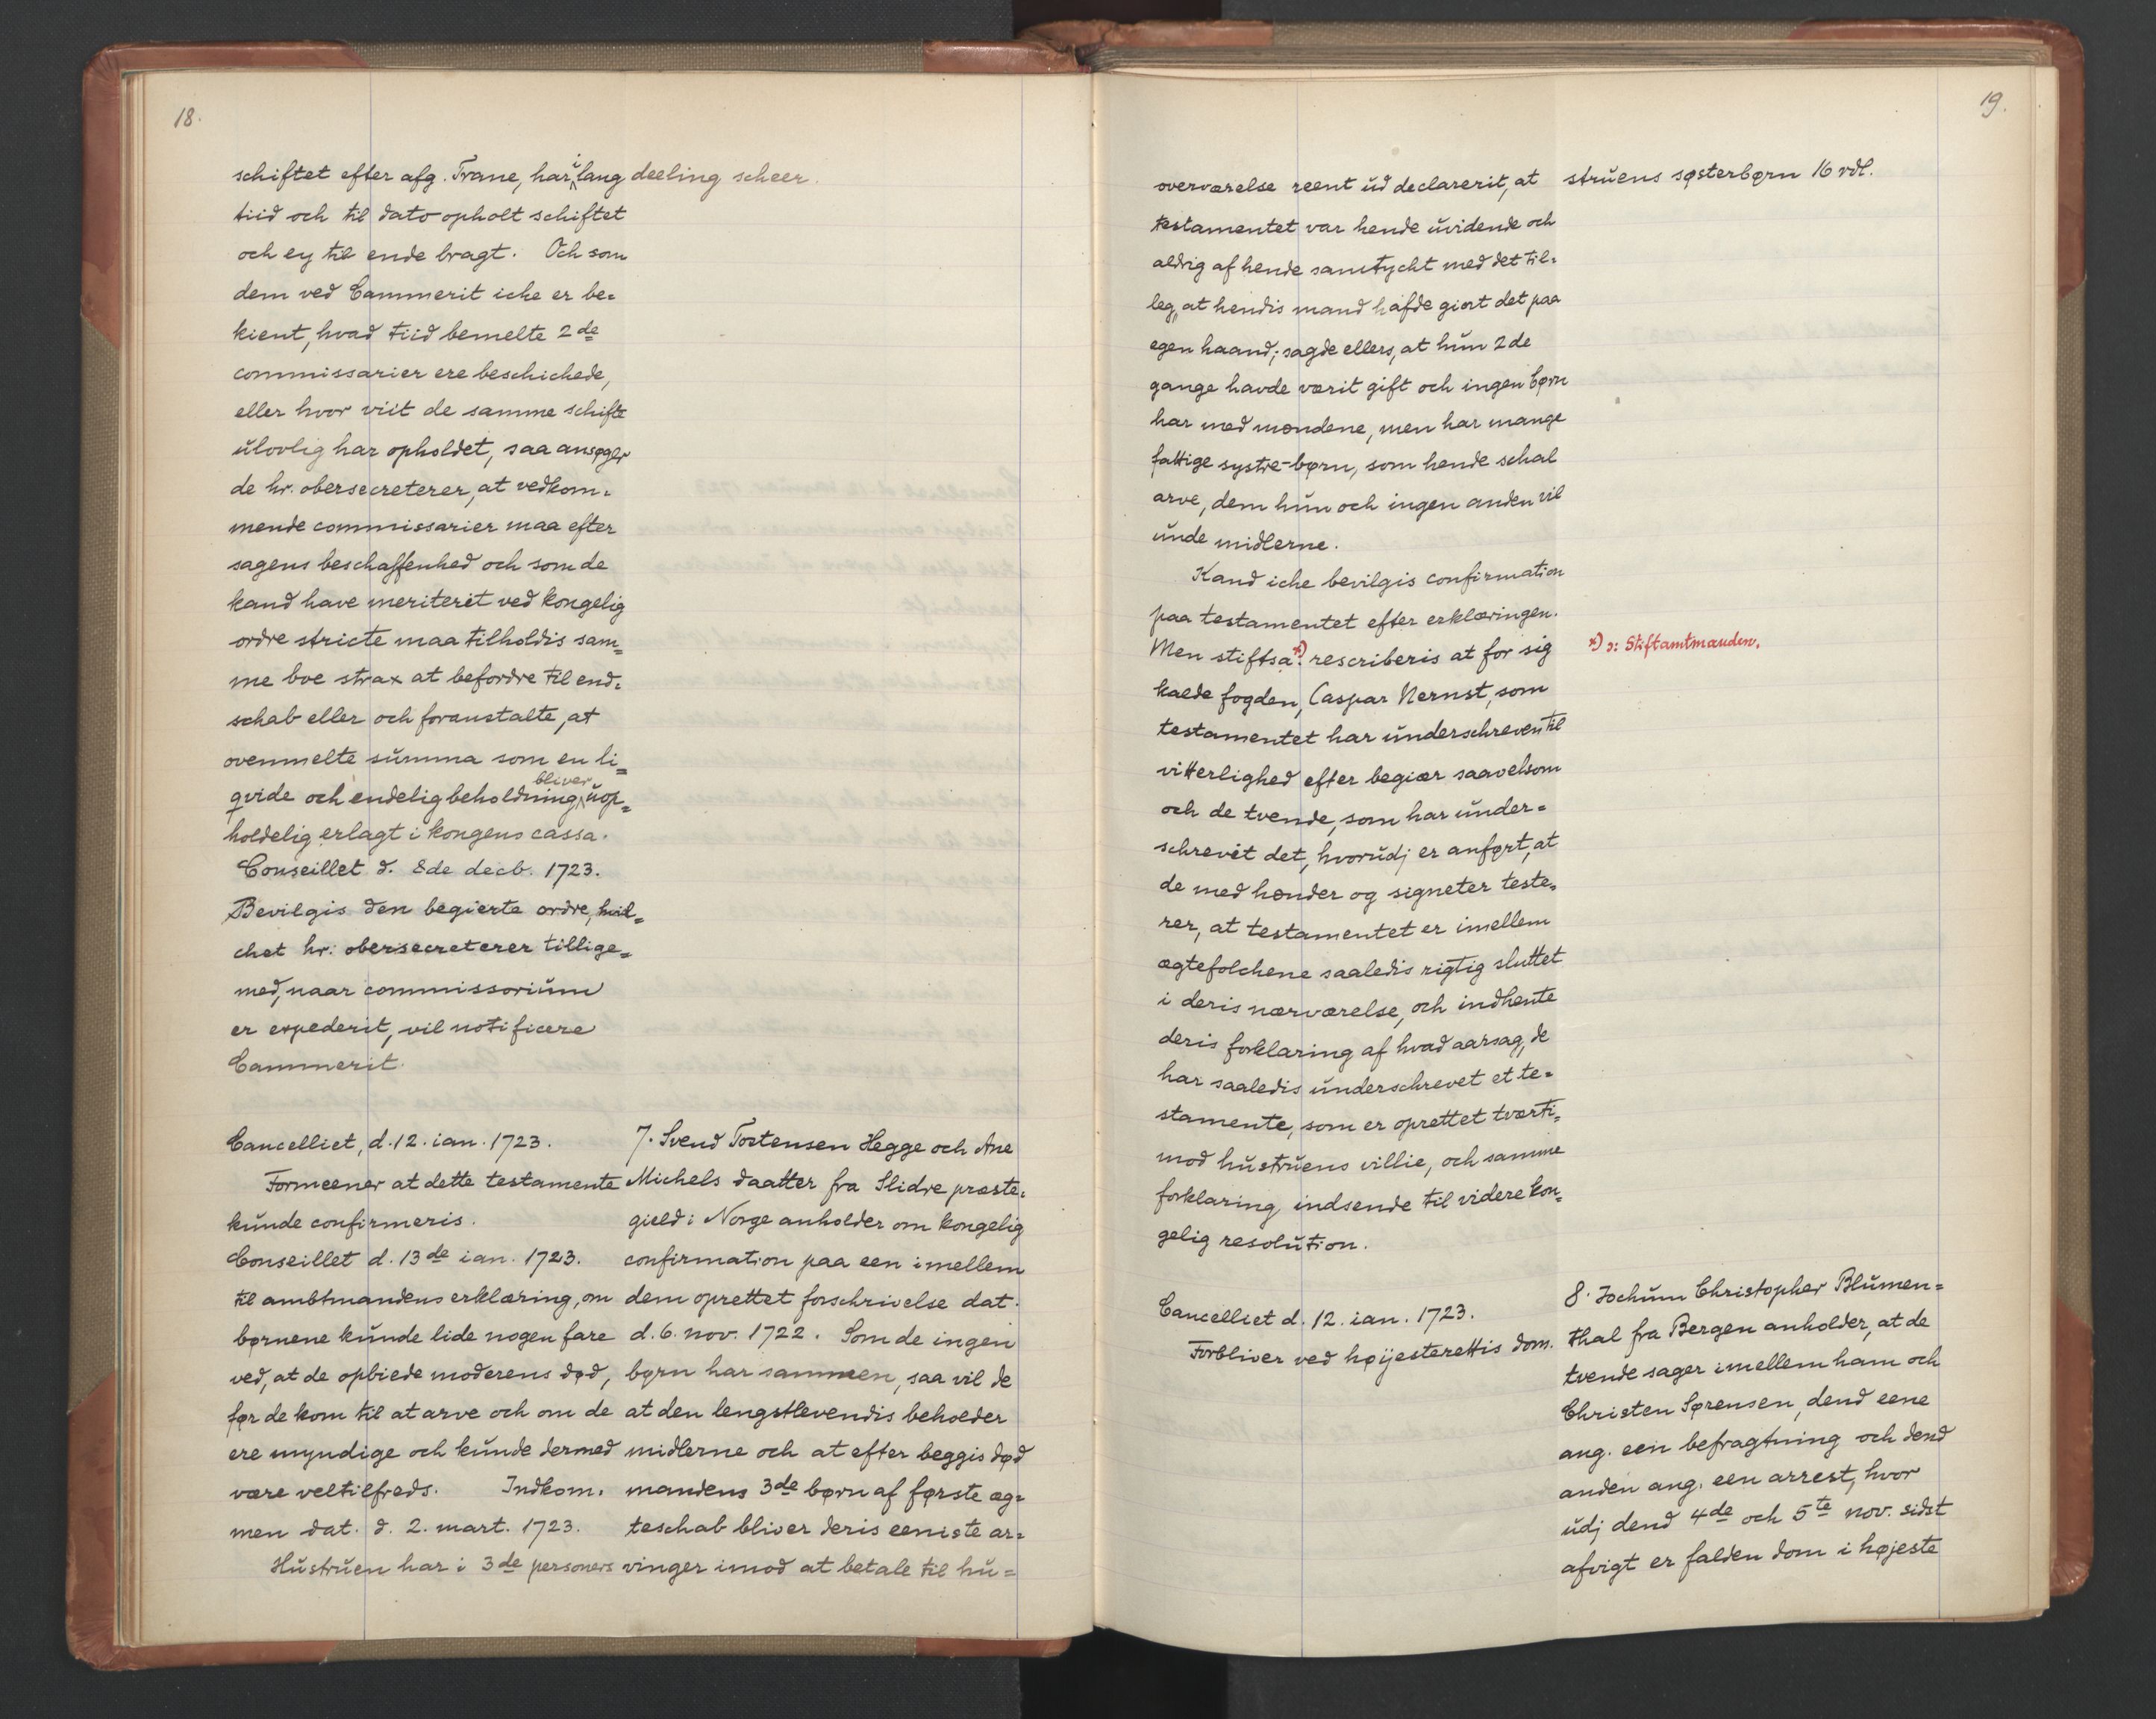 18.
schiftet efter afg. Trane, har i lang
tiid och til dato opholt schiftet
och ey til ende bragt. Och som
dem ved Cammerit iche er be=
kient, hvad tiid bemelte 2de
commissarier ere beschichede,
eller hvor viit de samme schifte
ulovlig har opholdet, saa ansøger
de hr. obersecreterer, at vedkom=
mende commissarier maa efter
sagens beschaffenhed och som de
kand have meriterit ved kongelig
ordre stricte maa tilholdis sam=
me boe strax at befordre til end=
schab eller och foranstalte, at
ovenmelte summa som en li=
qvide och endelig beholdning bliver uop=
holdelig erlagt i kongens cassa.
Conseillet d. 8de decb. 1723.
Bevilgis den begierte ordre, hvil=
chet hr: obersecreterer tillige=
med, naar commissorium
er expederit, vil notificere
Cammerit.
deeling scheer.
Cancelliet, d. 12. ian. 1723.
Formeener at dette testamente
kunde confirmeris.
Conseillet d. 13de ian. 1723.
til ambtmandens erklæring, om
børnene kunde lide nogen fare
ved, at de opbiede moderens død,
før de kom til at arve och om de
ere myndige och kunde dermed
være veltilfreds. Indkom=
men dat. d. 2. mart. 1723.
Hustruen har i 3de personers
7. Svend Tostensen Hegge och Ane
Michels daatter fra Slidre præste=
gield i Norge anholder om kongelig
confirmation paa een imellem
dem oprettet forschrivelse dat.
d. 6. nov. 1722. Som de ingen
børn har sammen, saa vil de
at den lengstlevendis beholder
midlerne och at efter beggis død
mandens 3de børn af første æg=
teschab bliver deris eeniste ar=
vinger imod at betale til hu=
19.
overværelse reent ud declarerit, at
testamentet var hende uvidende och
aldrig af hende samtycht med det til=
leg, at hendis mand hafde giort det paa
egen haand; sagde ellers, at hun 2de
gange havde værit gift och ingen børn
har med mændene, men har mange
fattige systre-børn, som hende schal
arve, dem hun och ingen anden vil
unde midlerne.
Kand iche bevilgis confirmation
paa testamentet efter erklæringen.
Men stiftsa. *) rescriberis at for sig
kalde fogden, Caspar Nernst, som
testamentet har underschreven til
vitterlighed efter begiær saavelsom
och de tvende, som har under=
schrevet det, hvorudj er anført, at
de med hænder og signeter teste=
rer, at testamentet er imellem
ægtefolchene saaledis rigtig sluttet
i deris nærværelse, och indhente
deris forklaring af hvad aarsag, de
har saaledis underschrevet et te=
stamente, som er oprettet tværti=
mod hustruens villie, och samme
forklaring indsende til videre kon=
gelig resolution.
struens søsterbørn 16 rdl.
*) ɔ: Stiftamtmanden.
Cancelliet d. 12. ian. 1723.
Forbliver ved høijesterettis dom.
8. Jochum Christopher Blumen=
thal fra Bergen anholder, at de
tvende sager imellem ham och
Christen Sørensen, dend eene
ang. een befragtning och dend
anden ang. een arrest, hvor
udj dend 4de och 5te nov. sidst
afvigt er falden dom i højeste